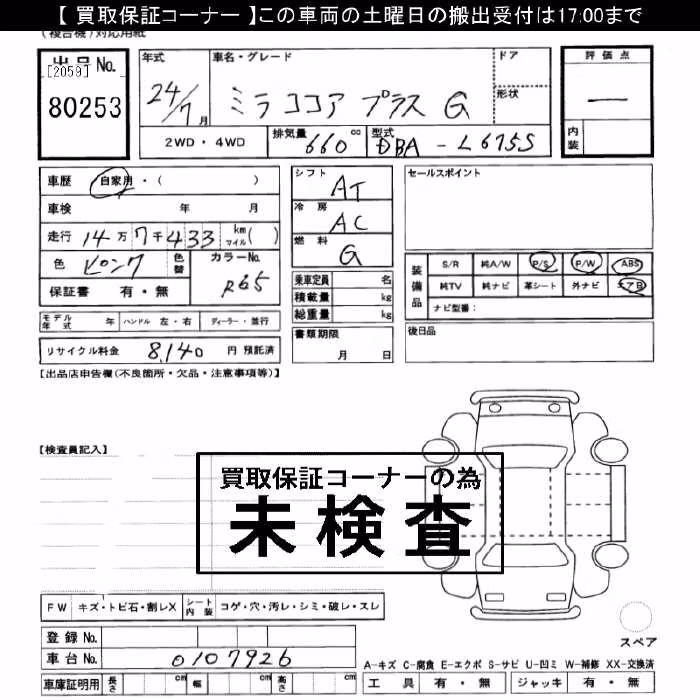 【 買取保証コーナー 】この車両の土曜日の搬出受付は17:00まで
(複合機)対応用紙
出品No.
[2059]
80253
年式 24/7月
車名・グレード ミラココア プラス G
ドア
形状
評価点 —
内装
2WD・4WD 排気量 660 cc 型式 DBA-L675S
車歴 自家用・( )
車検 年 月
走行 14万7千433 km マイル( )
色 ピンク 色替 カラーNo. R65
保証書 有・無
シフト AT
冷房 AC
燃料 G
乗車定員 名
積載量 kg
総重量 kg
セールスポイント
装備品 S/R 純A/W P/S P/W ABS
純TV 純ナビ 革シート 外ナビ エアB
ナビ型番:
モデル年式 年 ハンドル 左・右 ディーラー・並行
書類期限 月 日
後日品
リサイクル料金 8,140 円 預託済
【出品店申告欄(不良箇所・欠品・注意事項等)】
【検査員記入】
買取保証コーナーの為
未検査
FW キズ・トビ石・割レX シート内装 コゲ・穴・汚レ・シミ・破レ・スレ
スペア
登録No.
車台No. 0107926
A-キズ C-腐食 E-エクボ S-サビ U-凹ミ W-補修 XX-交換済
車庫証明用 長さ cm 幅 cm 高さ cm
工具 有・無 ジャッキ 有・無